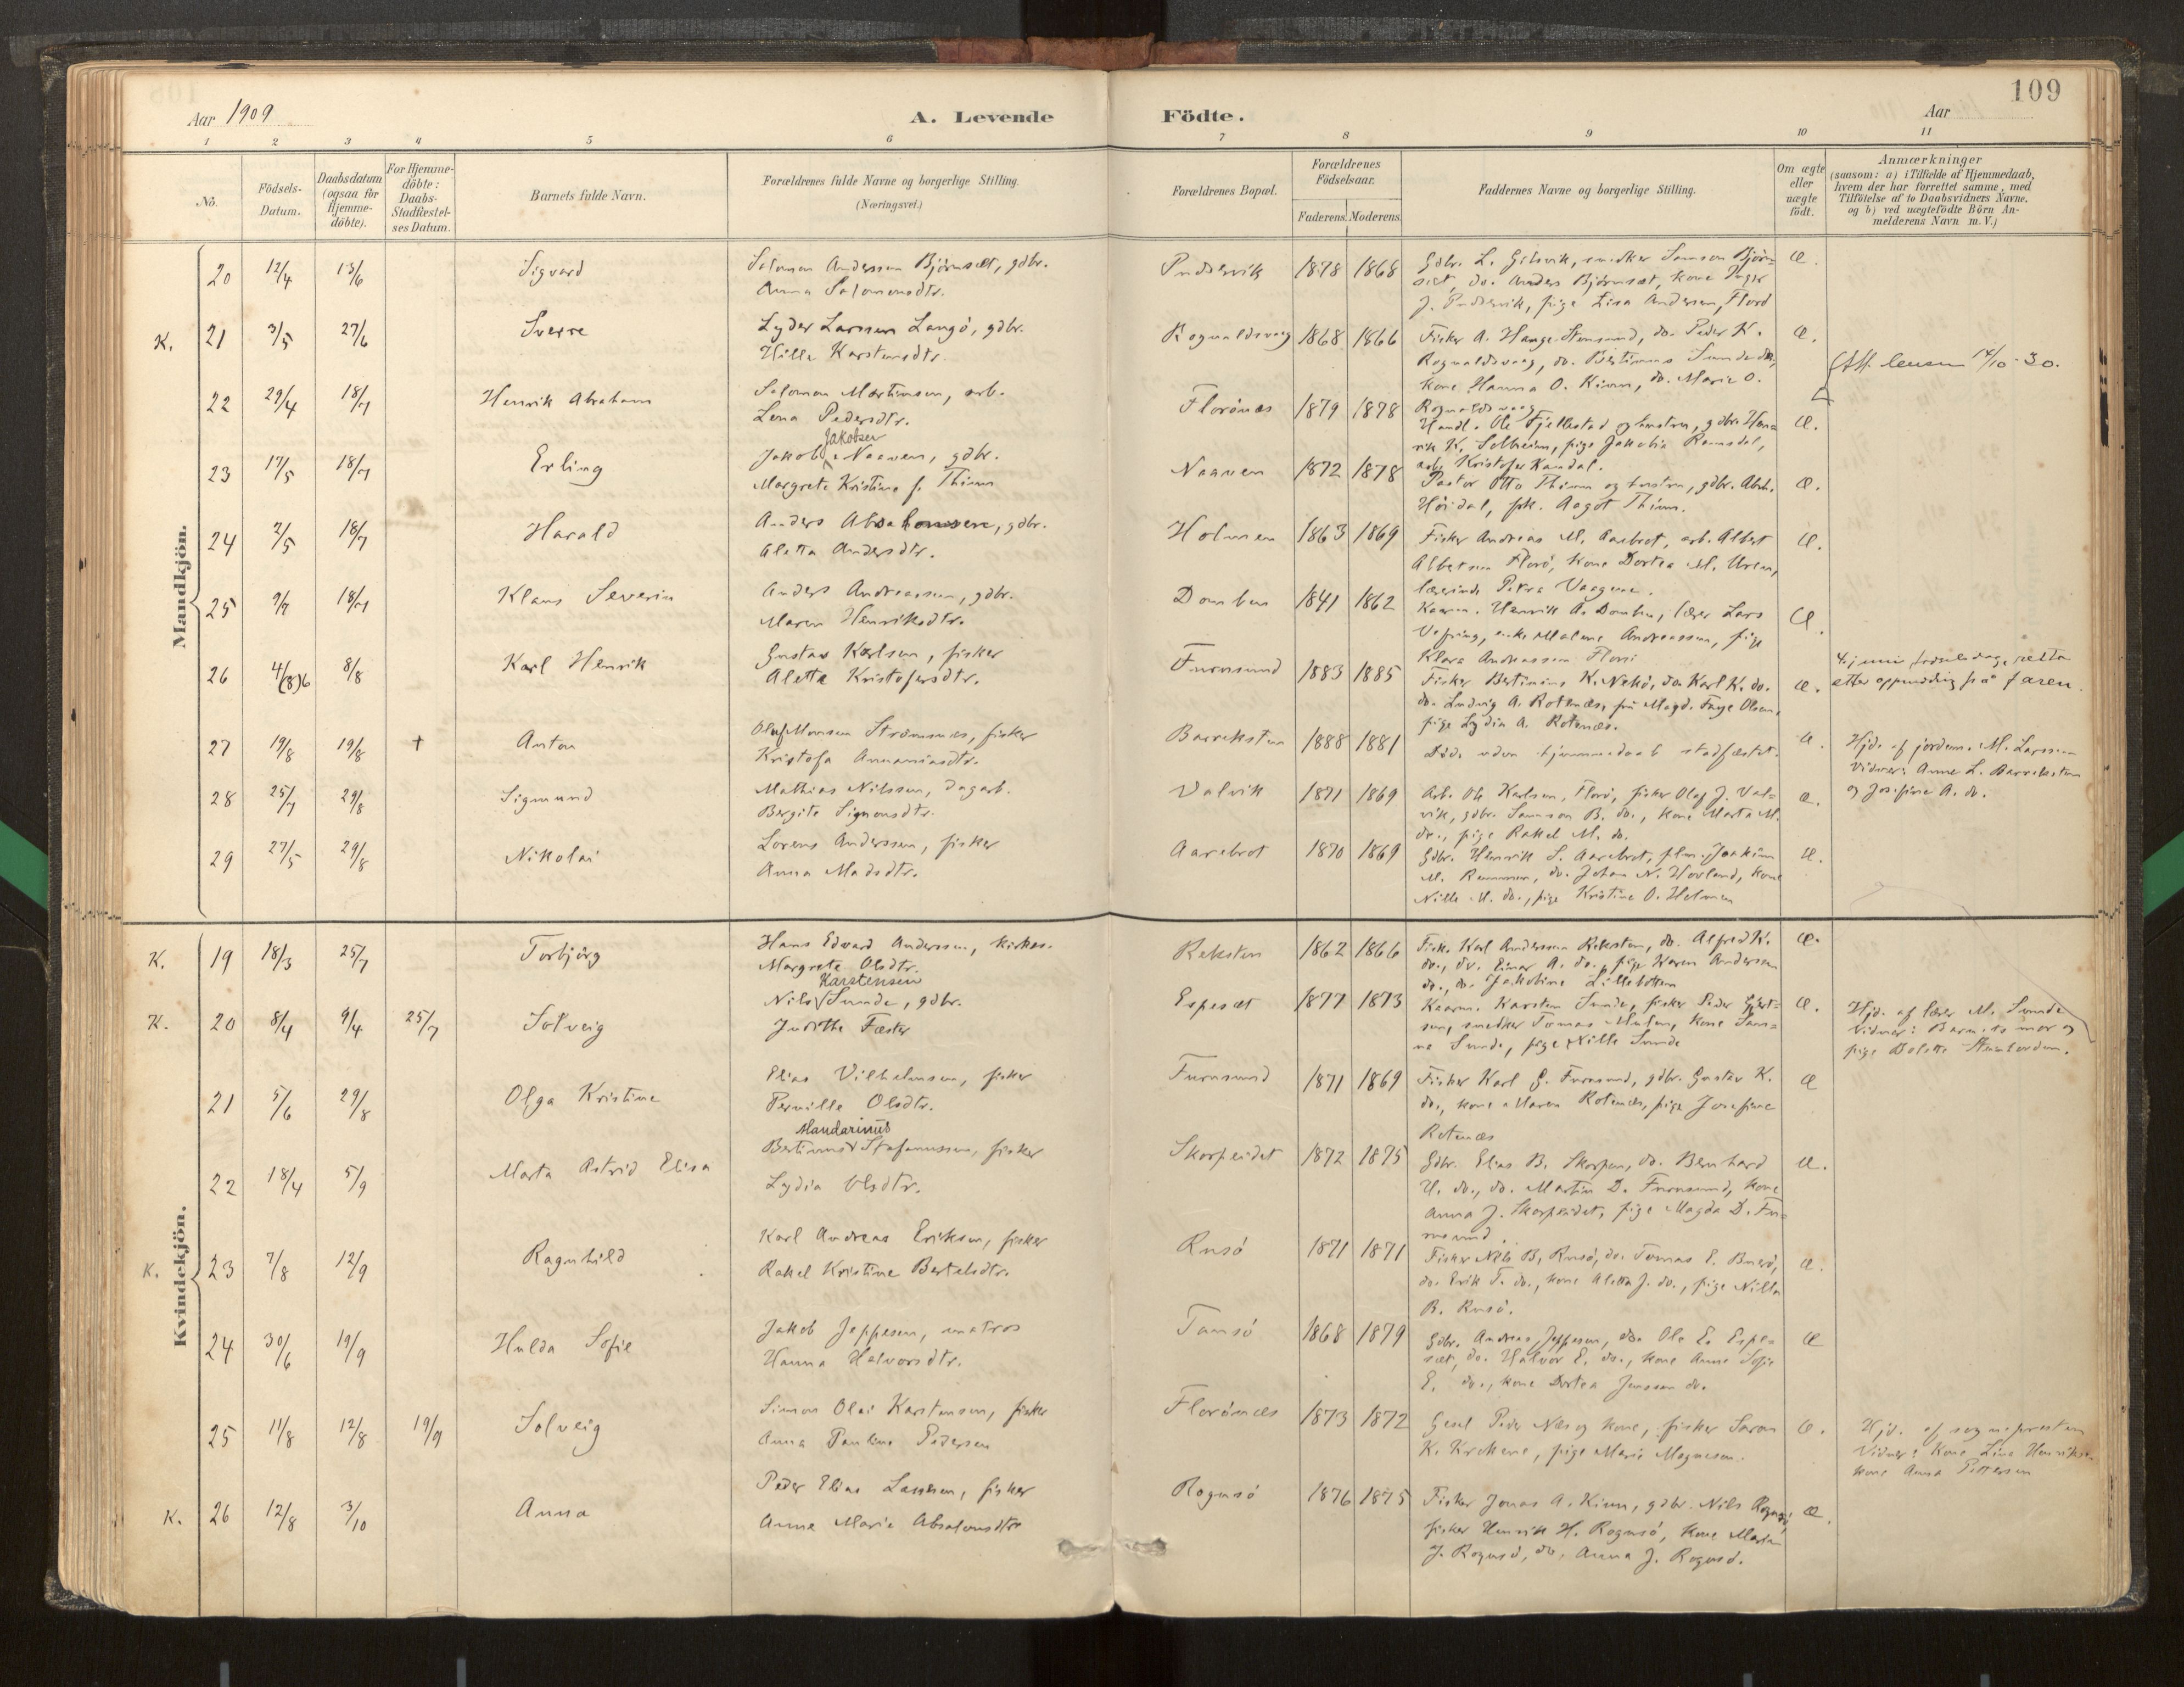 109
Aar 1909
A. Levende
Födte.
Aar
1 2 3 4 5 6 7 8 9 10 11
No.
Födsels-Datum.
Daabsdatum (ogsaa for Hjemme-döbte).
For Hjemme-döbte: Daabs-Stadfæstel-ses Datum.
Barnets fulde Navn.
Forældrenes fulde Navne og borgerlige Stilling.
(Næringsvei.)
Forældrenes Bopæl.
Forældrenes Födselsaar.
Faderens. Moderens.
Faddernes Navne og borgerlige Stilling.
Om ægte eller uægte födt.
Anmærkninger
(saasom: a) i Tilfælde af Hjemmedaab,
hvem der har forrettet samme, med
Tilföielse af to Daabsvidners Navne.
og b) ved uægtefödte Börn An-
melderens Navn m. V.)
Mandkjön.
20 12/4 13/6 Sigvard
Salomon Anderssen Björnsæt, gdbr.
Anna Salomonsdtr.
1878 1868
Gdbr. L. Gilsvik, snedker Samson Björn-
sæt, do. Anders Björnsæt, kone Inger
J. , pige Lisa Andersen, Florö
Æ.
K. 21 3/5 27/6 Sverre
Lyder Larssen Langö, gdbr.
Hille Karstensdtr.
Rognaldsvaag 1868 1866
Fisker A. Hauge Stensund, do. Peder K.
Rognaldsvaag, do. Bertinus Sunde do,
kone Hanna O. Kinn, do. Marie O.
Rognaldsvaag
Æ.
14/10-30.
22 29/4 18/7 Henrik Abraham
Salomon Martinsen, arb.
Lena Pedersdtr.
Florönæs 1879 1878
Handl. Ole Fjellestad og hustru, gdbr. Hen-
rik K. Solheim, pige Jakobia Ramsdal,
arb. Kristofer Kandal.
Æ.
23 17/5 18/7 Erling
Jakobsen
Jakob Naaven, gdbr.
Margrete Kristine f. Thinn
Naaven 1872 1878
Pastor Otto Thinn og hustru, gdbr. Abrh.
Höidal, frk. Aagot Thinn.
Æ.
24 2/5 18/7 Harald
Anders Absalonsen, gdbr.
Aletta Andersdtr.
Holmen 1863 1869
Fisker Andreas M. Aarebrot, arb. Albert
Albertsen Florö, kone Dortea M. Uren,
lærerinde Petra Vaagene.
Æ.
25 18/7 Klaus Severin
Anders Andreassen, gdbr.
Maren Henriksdtr.
Domben 1841 1862
Henrik A. Domben, lærer Lars
Vefring, enke Malene Andreassen, pige
Klara Andreassen Florö
Æ.
26 4/(8)6 8/8 Karl Henrik
Gustav Karlsen, fisker
Aletta Kristofersdtr.
Furusund 1883 1885
Fisker Bertinius K. Nekö, do. Karl K. do.
do. Ludvig A. Rotenæs, fru Magd. Frye Olsen,
pige Lydia A. Rotenæs.
Æ.
4. juni födselsdag, retta
etter oppmoding frå faren.
27 19/8 19/8 † Anton
Oluf Monsen Strömsnæs, fisker
Kristofa Annaniasdtr.
Bareksten 1888 1881
Död. uden hjemmedaab stadfæstet.
Æ.
Hjd. af jordem. M. Larssen
Vidner: Anne L. Barrekstein
og Josefine A. do.
28 25/7 29/8 Sigmund
Mathias Nilssen, dagarb.
Bergite Sigmonsdtr.
Valvik 1871 1869
Arb. Ole Karlsen, Florö, fisker Olaf J. Val-
vik, gdbr. Samson B. do., kone Marta M.
do., pige Rakel M. do.
Æ.
29 27/5 29/8 Nikolai
Lorens Anderssen, fisker
Anna Madsdtr.
Aarebrot 1870 1869
Gdbr. Henrik S. Aarebrot, plm. Joakim
M. , do. Johan N. Hovland, kone
Nille M. do., pige Kristine O. Holmen
Æ.
Kvindekjön.
K. 19 18/3 25/7 Torbjörg
Hans Edvard Anderssen, kirkes.
Margrete Olsdtr.
Reksten 1862 1866
Fisk. Karl Anderssen Reksten, do. Alfred K.
do., do. Einar A. do., pige Karen Andersen
do., do. Jakobine Lillebotten
Æ.
K. 20 8/4 9/4 25/7 Solveig
Karstensen
Nils Sunde, gdbr.
Judithe Fester
Espesæt 1877 1873
Karsten Sunde, fisker Peder Gjert-
sen, snedker Tomas Hulen, kone San-
ne Sunde, pige Nille Sunde
Æ.
Hjd. af lærer M. Sunde
Vidner: Barnets mor og
pige Bolette
21 5/6 29/8 Olga Kristine
Elias Vilhelmsen, fisker
Pernille Olsdtr.
Furusund 1871 1869
Fisker Karl G. Furusund, gdbr. Gustav K.
do., kone Maren Rotenæs, pige Josefine
Rotenæs
Æ
22 18/4 5/9 Marta Astrid Elisa
Mandarinus
Bertinus Stefanussen, fisker
Lydia Olsdtr.
Skorpeidet 1872 1875
Gdbr. Elias B. Skorpen, do. Bernhard
H. do., do. Martin D. Furusund, kone
Anna J. Skorpeidet, pige Magda D. Fu-
rusund.
Æ.
K. 23 7/8 12/9 Ragnhild
Karl Andreas Eriksen, fisker
Rakel Kristine Bertelsdtr.
Rusö 1871 1871
Fisker Nils B. Rusö, do. Tomas E. Buerö,
do. Erik T. do., kone Aletta J. do., pige Nilla
B. Rusö.
Æ.
24 30/6 19/9 Hulda Sofie
Jakob Jeppesen, matros
Hanna Halvorsdtr.
Tansö 1868 1879
Gdbr. Andreas Jeppesen, do. Ole E. Espe-
sæt, do. Halvor E. do., kone Anne Sofie
E. do., kone Dortea Jenssen do.
Æ
25 11/8 12/8 19/9 Solveig
Simon Olai Karstensen, fisker
Anna Pauline Pedersen
Florönæs 1873 1872
Gesel Peder Næs og kone, fisker Saron
K. , pige Marie Magnesen.
Æ.
Hjd. af sognepresten
Vidner: Kone Lina Henriksen
kone Anna Pettersen
K. 26 12/8 3/10 Anna
Peder Elias Larssen, fisker
Anne Marie Absalonsdtr
Rognsö 1876 1875
Fisker Jonas A. Kinn, gdbr. Nils Rognsö,
fisker Henrik H. Rognsö, kone Marta
J. Rognsö, do. Anna J. Rognsö.
Æ.